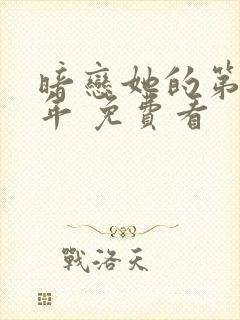 暗戀她的第
年 免費看
戰洛天